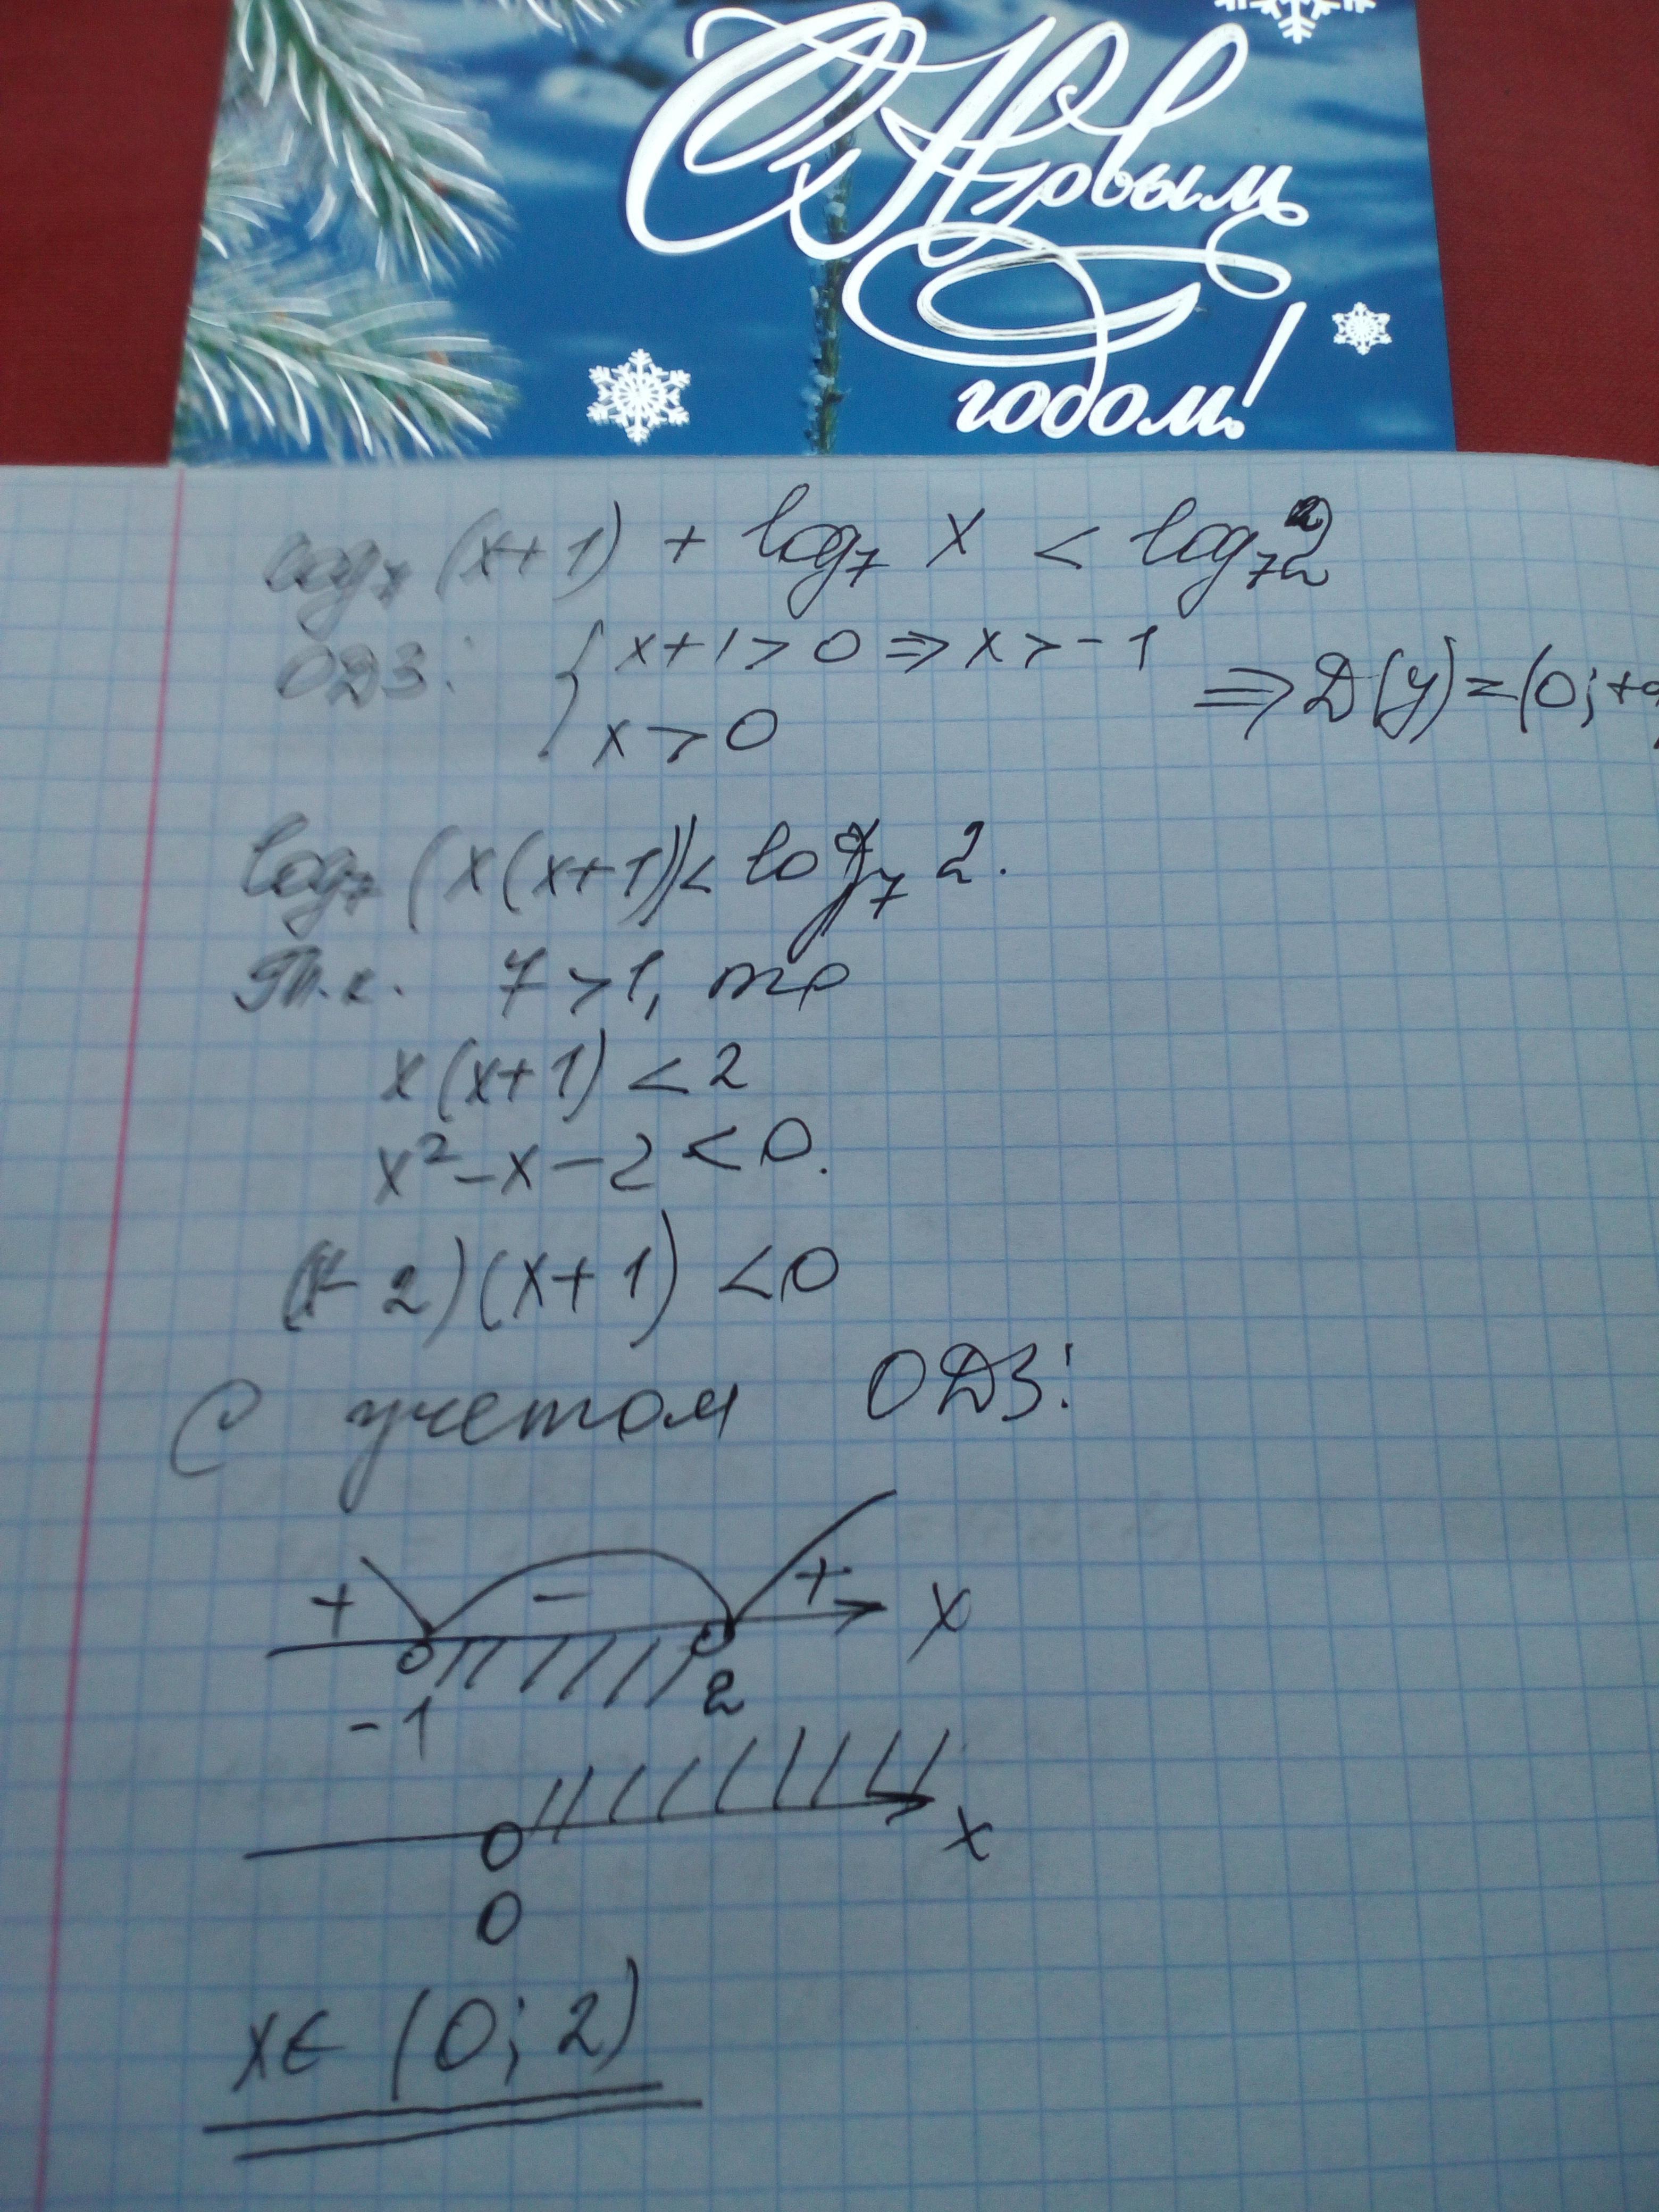 С Новым
годом!
log₇ (x+1) + log₇ x < log₇ 2
ОДЗ: { x+1 > 0 ⇒ x > -1
x > 0
⇒ D(y) = (0; +
log₇ (x(x+1)) < log₇ 2.
Т.к. 7 > 1, то
x(x+1) < 2
x² - x - 2 < 0.
(x - 2)(x+1) < 0
С учетом ОДЗ:
+ - + x
-1 2
x
0
x ∈ (0; 2)